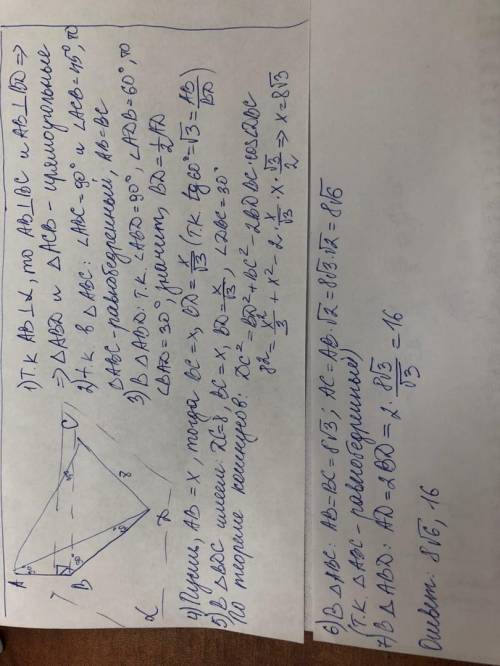 A
B
C
D
α
8
45°
60°
30°
1) Т.к AB⊥α, то AB⊥BC и AB⊥BD ⇒
⇒ △ABD и △ACB - прямоугольные
2) т.к. в △ABC: ∠ABC=90° и ∠ACB=45°, то
△ABC - равнобедренный, AB=BC
3) В △ABD. Т.к. ∠ABD=90°, ∠ADB=60°, то
∠BAD=30°, значит, BD=1/2 AD
4) Пусть, AB=x, тогда BC=x, BD=x/√3 (т.к. tg60°=√3=AB/BD)
5) В △BDC имеем DC=8, BC=x, BD=x/√3, ∠DBC=30°
По теореме косинусов: DC²=BD²+BC²-2BD·BC·cos∠DBC
8²=x²/3+x²-2·x/√3·x·√3/2 ⇒ x=8√3
6) В △ABC: AB=BC=8√3; AC=AB·√2=8√3·√2=8√6
(т.к. △ABC - равнобедренный)
7) В △ABD: AD=2BD=2·8√3/√3=16
Ответ: 8√6, 16